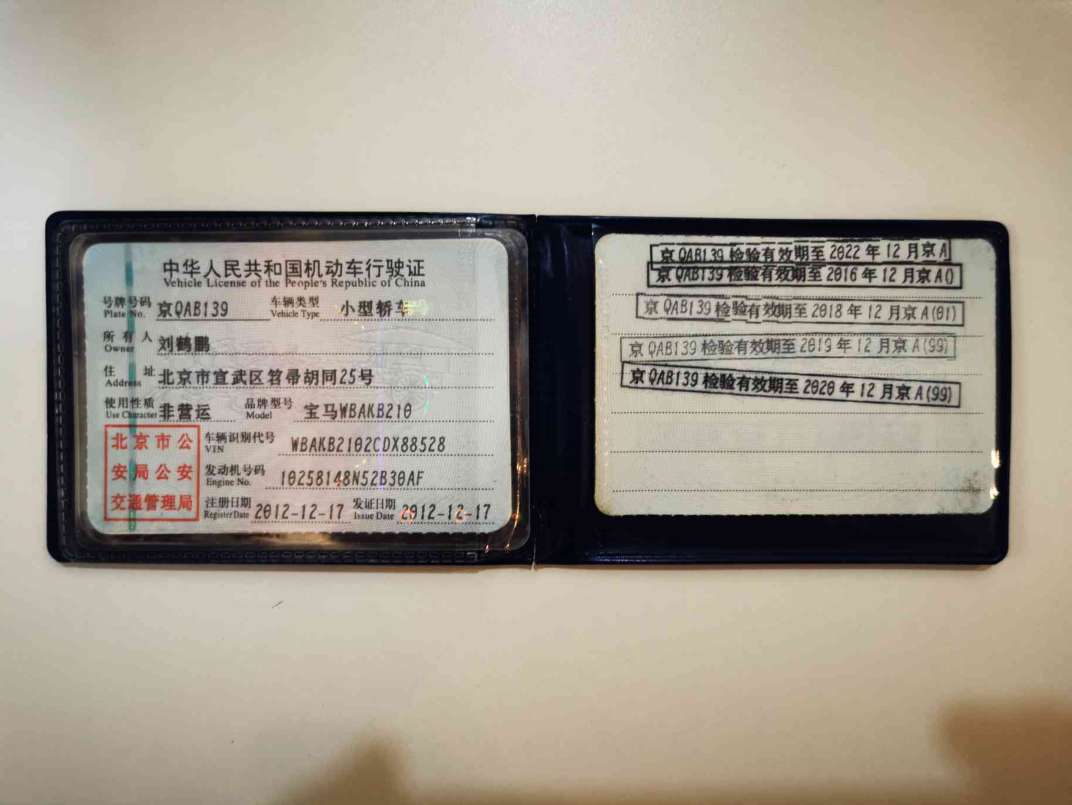 中华人民共和国机动车行驶证
Vehicle License of the People's Republic of China
号牌号码 京QAB139 车辆类型 小型轿车
Plate No. Vehicle Type
所有人 刘鹤鹏
Owner
住址 北京市宣武区笤帚胡同25号
Address
使用性质 非营运 品牌型号 宝马WBAKB210
Use Character Model
北京市公
安局公安
交通管理局
车辆识别代号 WBAKB2102CDX88528
VIN
发动机号码 10258148N52B30AF
Engine No.
注册日期 2012-12-17 发证日期 2012-12-17
Register Date Issue Date
京QAB139 检验有效期至 2022 年 12 月京A
京QAB139 检验有效期至 2016 年 12 月京A()
京QAB139 检验有效期至 2018 年 12 月京A(01)
京QAB139 检验有效期至 2019 年 12 月京A(99)
京QAB139 检验有效期至 2020 年 12 月京A(99)